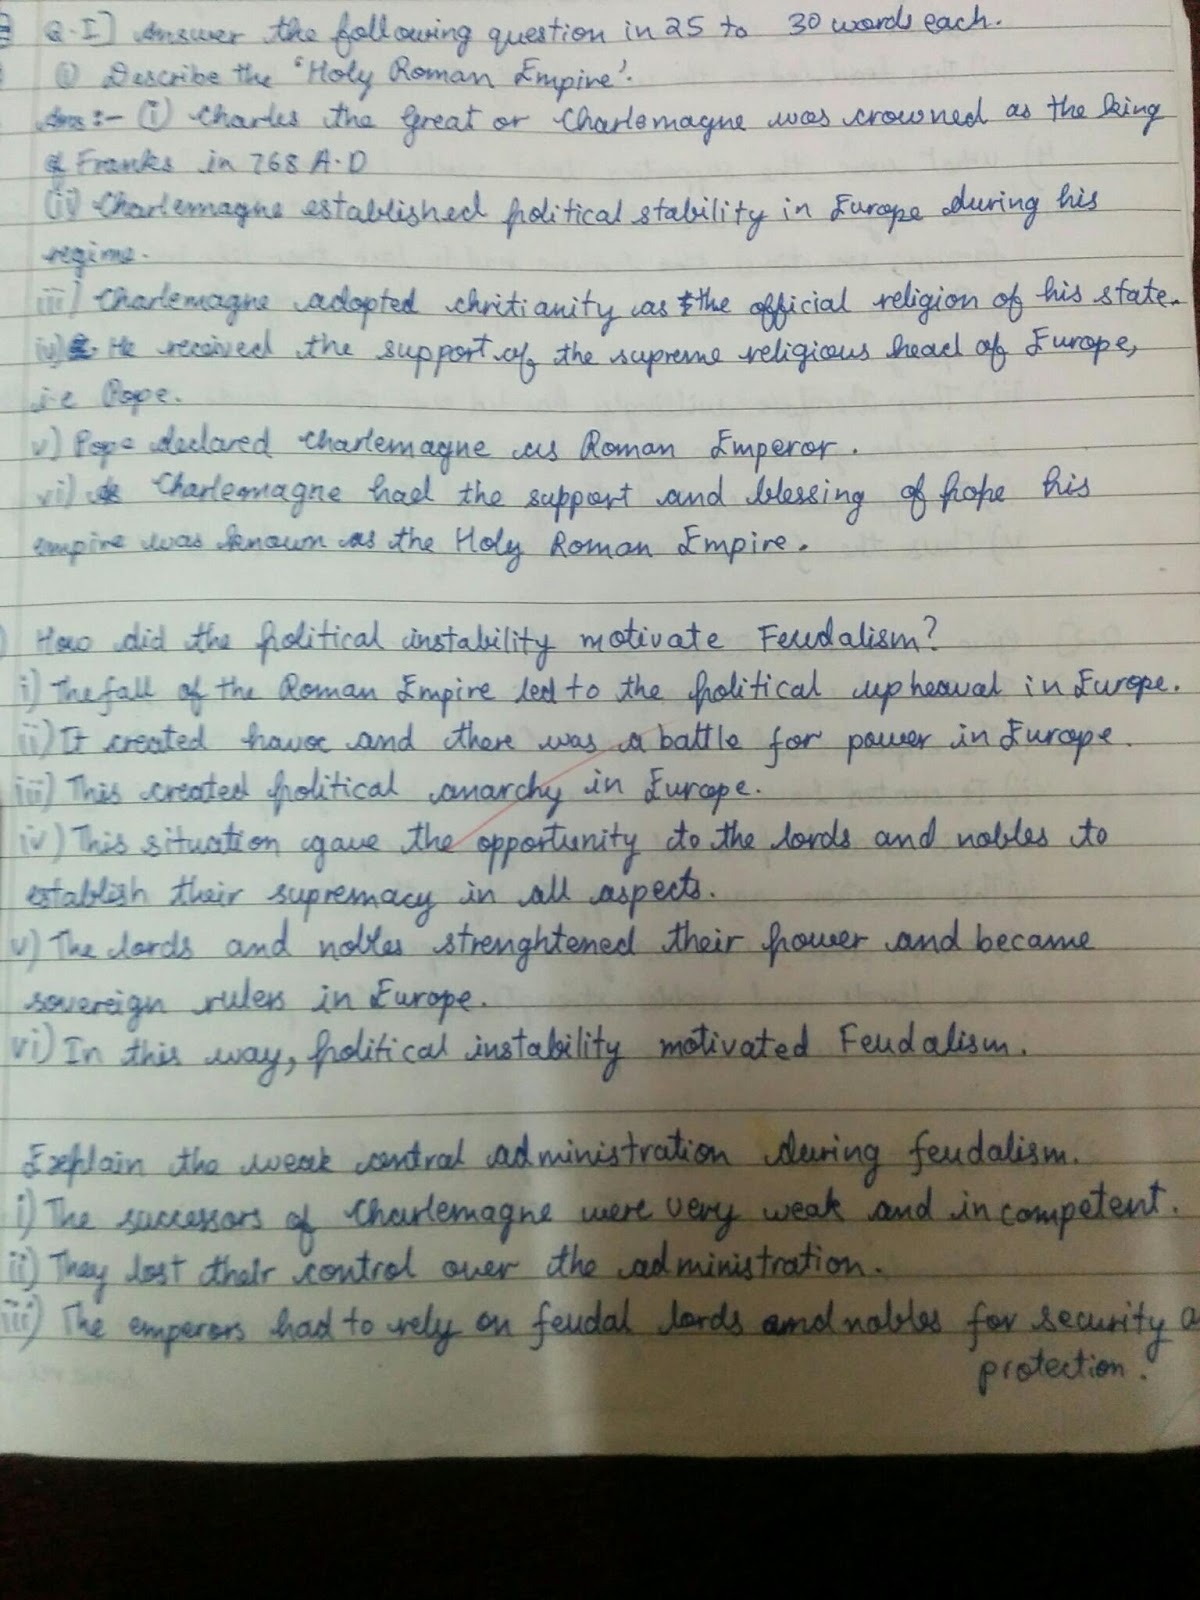 Q.I] Answer the following question in 25 to 30 words each.
i) Describe the 'Holy Roman Empire'.
Ans:- (i) Charles the Great or Charlemagne was crowned as the king
of Franks in 768 A.D
(ii) Charlemagne established political stability in Europe during his
regime.
iii) Charlemagne adopted chritianity as the official religion of his state.
iv) He received the support of the supreme religious head of Europe,
i.e Pope.
v) Pope declared Charlemagne as Roman Emperor.
vi) Charlemagne had the support and blessing of pope his
empire was known as the Holy Roman Empire.
) How did the political instability motivate Feudalism?
i) The fall of the Roman Empire led to the political upheaval in Europe.
ii) It created havoc and there was a battle for power in Europe.
iii) This created political anarchy in Europe.
iv) This situation gave the opportunity to the lords and nobles to
establish their supremacy in all aspects.
v) The lords and nobles strenghtened their power and became
sovereign rulers in Europe.
vi) In this way, political instability motivated Feudalism.
Explain the weak central administration during feudalism.
i) The successors of Charlemagne were very weak and incompetent.
ii) They lost their control over the administration.
iii) The emperors had to rely on feudal lords and nobles for security a
protection.